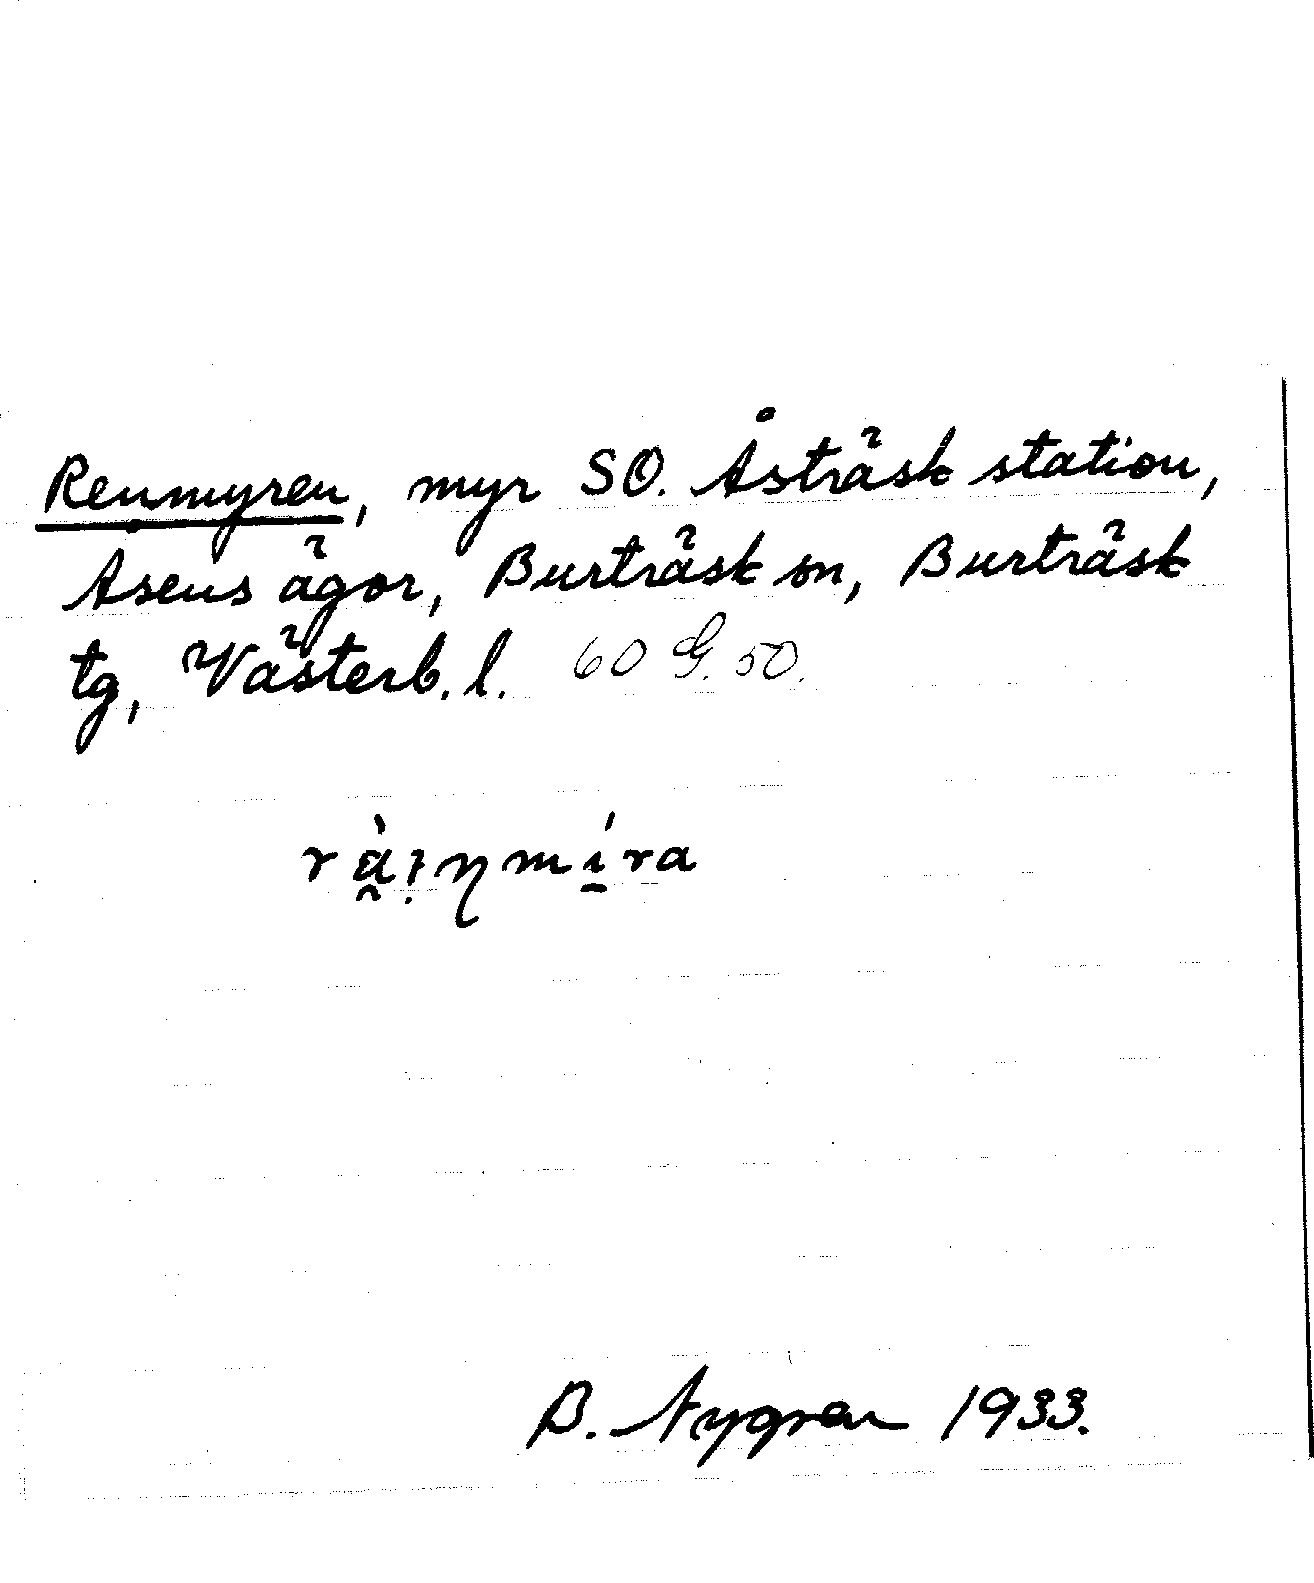 Renmyren, myr SO. Åsträsk station,
Åsens ägor, Burträsk sn, Burträsk
tg, Västerb. l. 60 G. 50.
B. Nygren 1933.